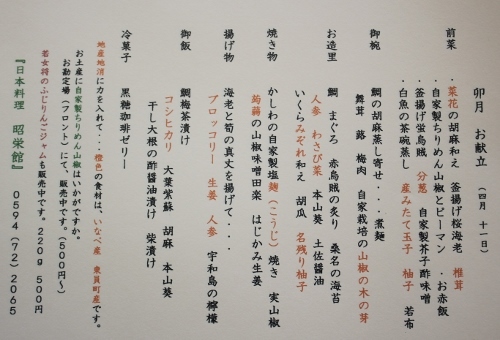 卯月 お献立 (四月 十一日)
前菜
・菜花の胡麻和え 釜揚げ桜海老 椎茸
・自家製ちりめん山椒とピーマン ・お赤飯
・釜揚げ蛍烏賊 分葱 自家製芥子酢味噌
・白魚の茶碗蒸し 産みたて玉子 柚子 若布
御椀 鯛の胡麻蒸し寄せ・・・煮麺
舞茸 蕗 梅肉 自家栽培の山椒の木の芽
お造里 鯛 まぐろ 赤烏賊の炙り 桑名の海苔
人参 わさび菜 本山葵 土佐醤油
いくらみぞれ和え 胡瓜 名残り柚子
焼き物 かしわの自家製塩麹(こうじ)焼き 実山椒
蒟蒻の山椒味噌田楽 はじかみ生姜
揚げ物 海老と筍の真丈を揚げて・・・・
ブロッコリー 生姜 人参 宇和島の檸檬
御飯 鯛梅茶漬け
コシヒカリ 大葉紫蘇 胡麻 本山葵
干し大根の酢醤油漬け 柴漬け
冷菓子 黒糖珈琲ゼリー
地産地消に力を入れて・・・橙色の食材は、いなべ産 東員町産です。
お土産に自家製ちりめん山椒はいかがですか。
お勘定場(フロント)にて、販売中です。(600円~)
若女将のふじりんごジャムも販売中です。220g 500円
『日本料理 昭栄館』 0594(72)2065